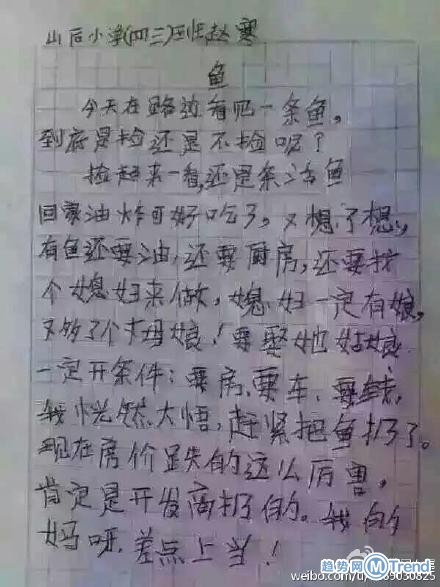 山后小学(四三)班赵寒
鱼
今天在路边看见一条鱼,
到底是捡还是不捡呢?
捡起来一看,还是条活鱼
回家油炸可好吃了,又想了想,
有鱼还要油,还要厨房,还要找
个媳妇来做,媳妇一定有娘,
又够了个丈母娘!要娶她姑娘
一定开条件:要房、要车、要钱,
我恍然大悟,赶紧把鱼扔了。
现在房价跌的这么厉害,
肯定是开发商扔的。我的
妈呀,差点上当!
趋势网 Mtrend